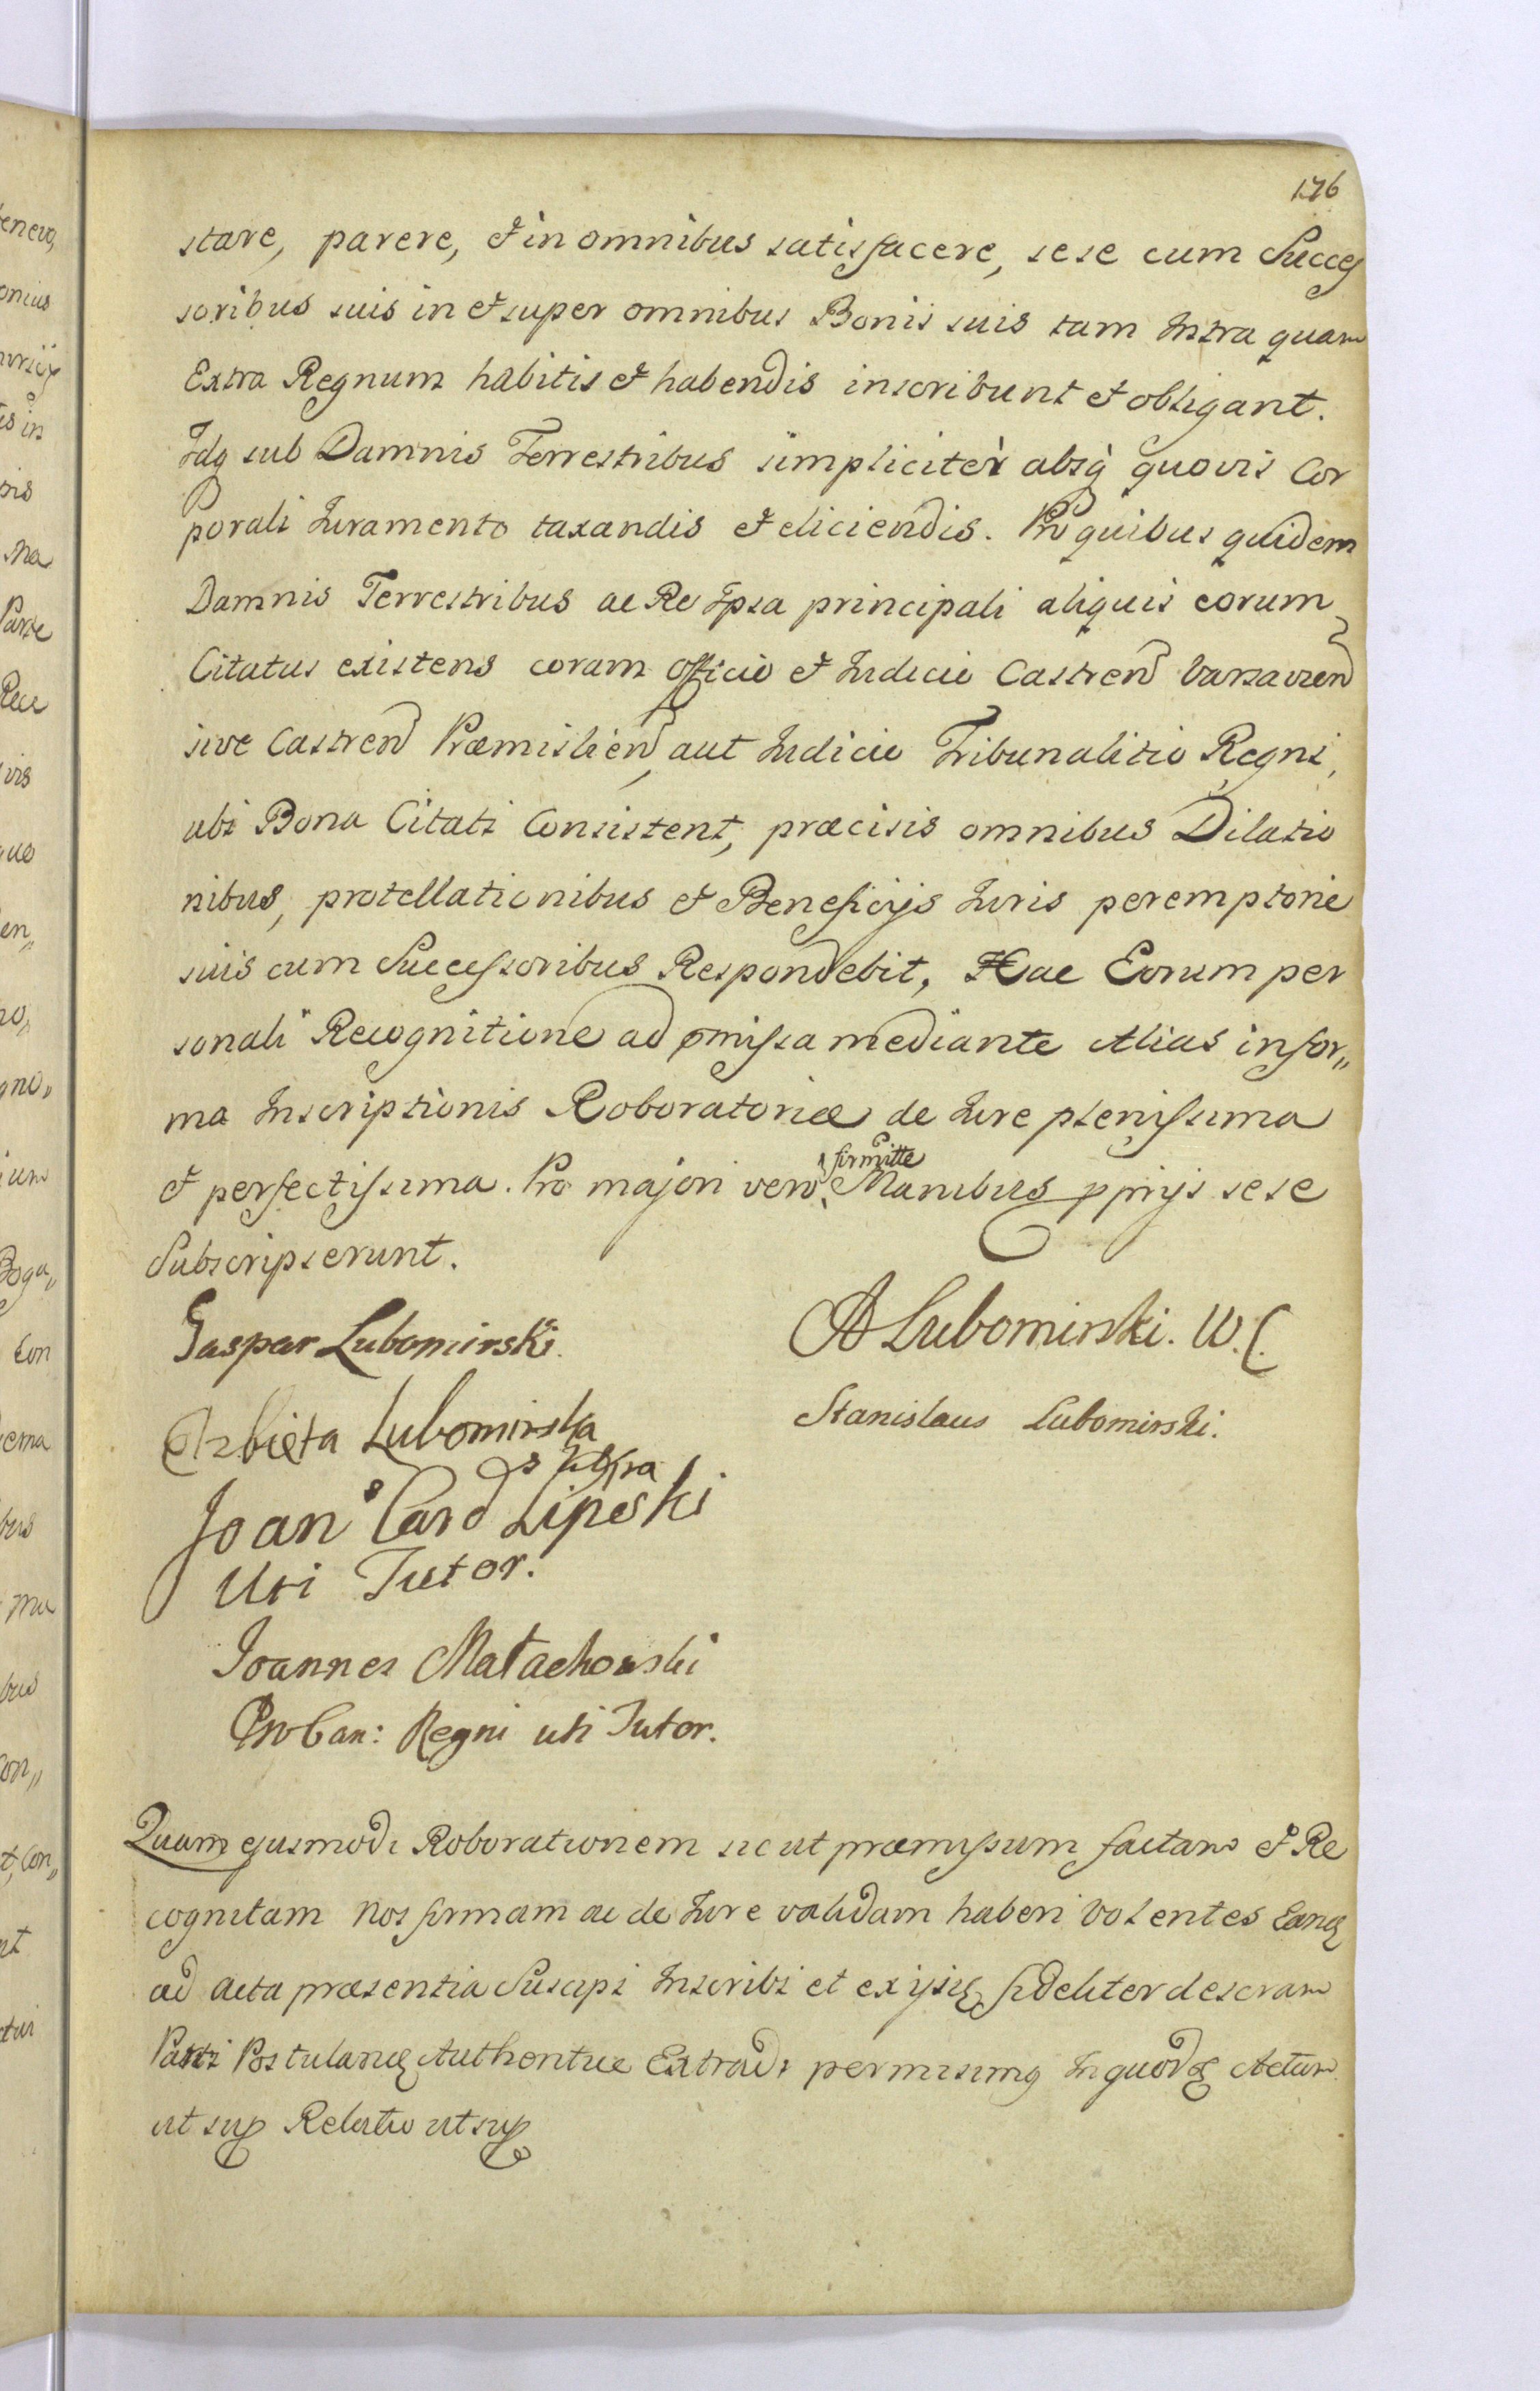 176
stare, parere, et in omnibus satisfacere, sese cum Succes
soribus suis in et super omnibus Bonis suis tam Intra quam
Extra Regnum habitis et habendis inscribunt et obligant.
Idq sub Damnis Terrestribus simplicitèr absq̀ quovis Cor
porali Iuramento taxandis et eliciendis. Pro quibus quidem
Damnis Terrestribus ac Re Ipsa principali aliquis eorum
Citatus existens coram Officio et Iudicio Castren Varsavien
sive Castren Præmislien, aut Iudicio Tribunalitio Regni,
ubi Bona Citati Consistent, præcisis omnibus Dilatio
nibus, protellationibus et Beneficijs Iuris peremptorie
suis cum Successoribus Respondebit, Hac Eorum per
sonali Recognitione ad pmissa mediante Alias in for„
ma Inscriptionis Roboratoriæ de Iure plenissima
et perfectissima. Pro majori vero firmitte Manibus pprijs sese
Subscripserunt.
Gaspar Lubomirski.
A Lubomirski. W. C.
Elzbieta Lubomirska
Stanislaus Lubomirski.
Joan Card Lipski
Uti Tutor.
Joannes Małachowski
ProCan: Regni uti Tutor.
Quam ejusmodi Roborationem sic ut præmissum factam et Re
cognitam Nos firmam ac de Iure validam haberi Volentes Eamq
ad Acta præsentia Suscipi Inscribi et ex ijsq fideliter descram
Parti Postulanq Authentice Extradi permisimq Inquorq Actum
ut sup Relatio ut sup